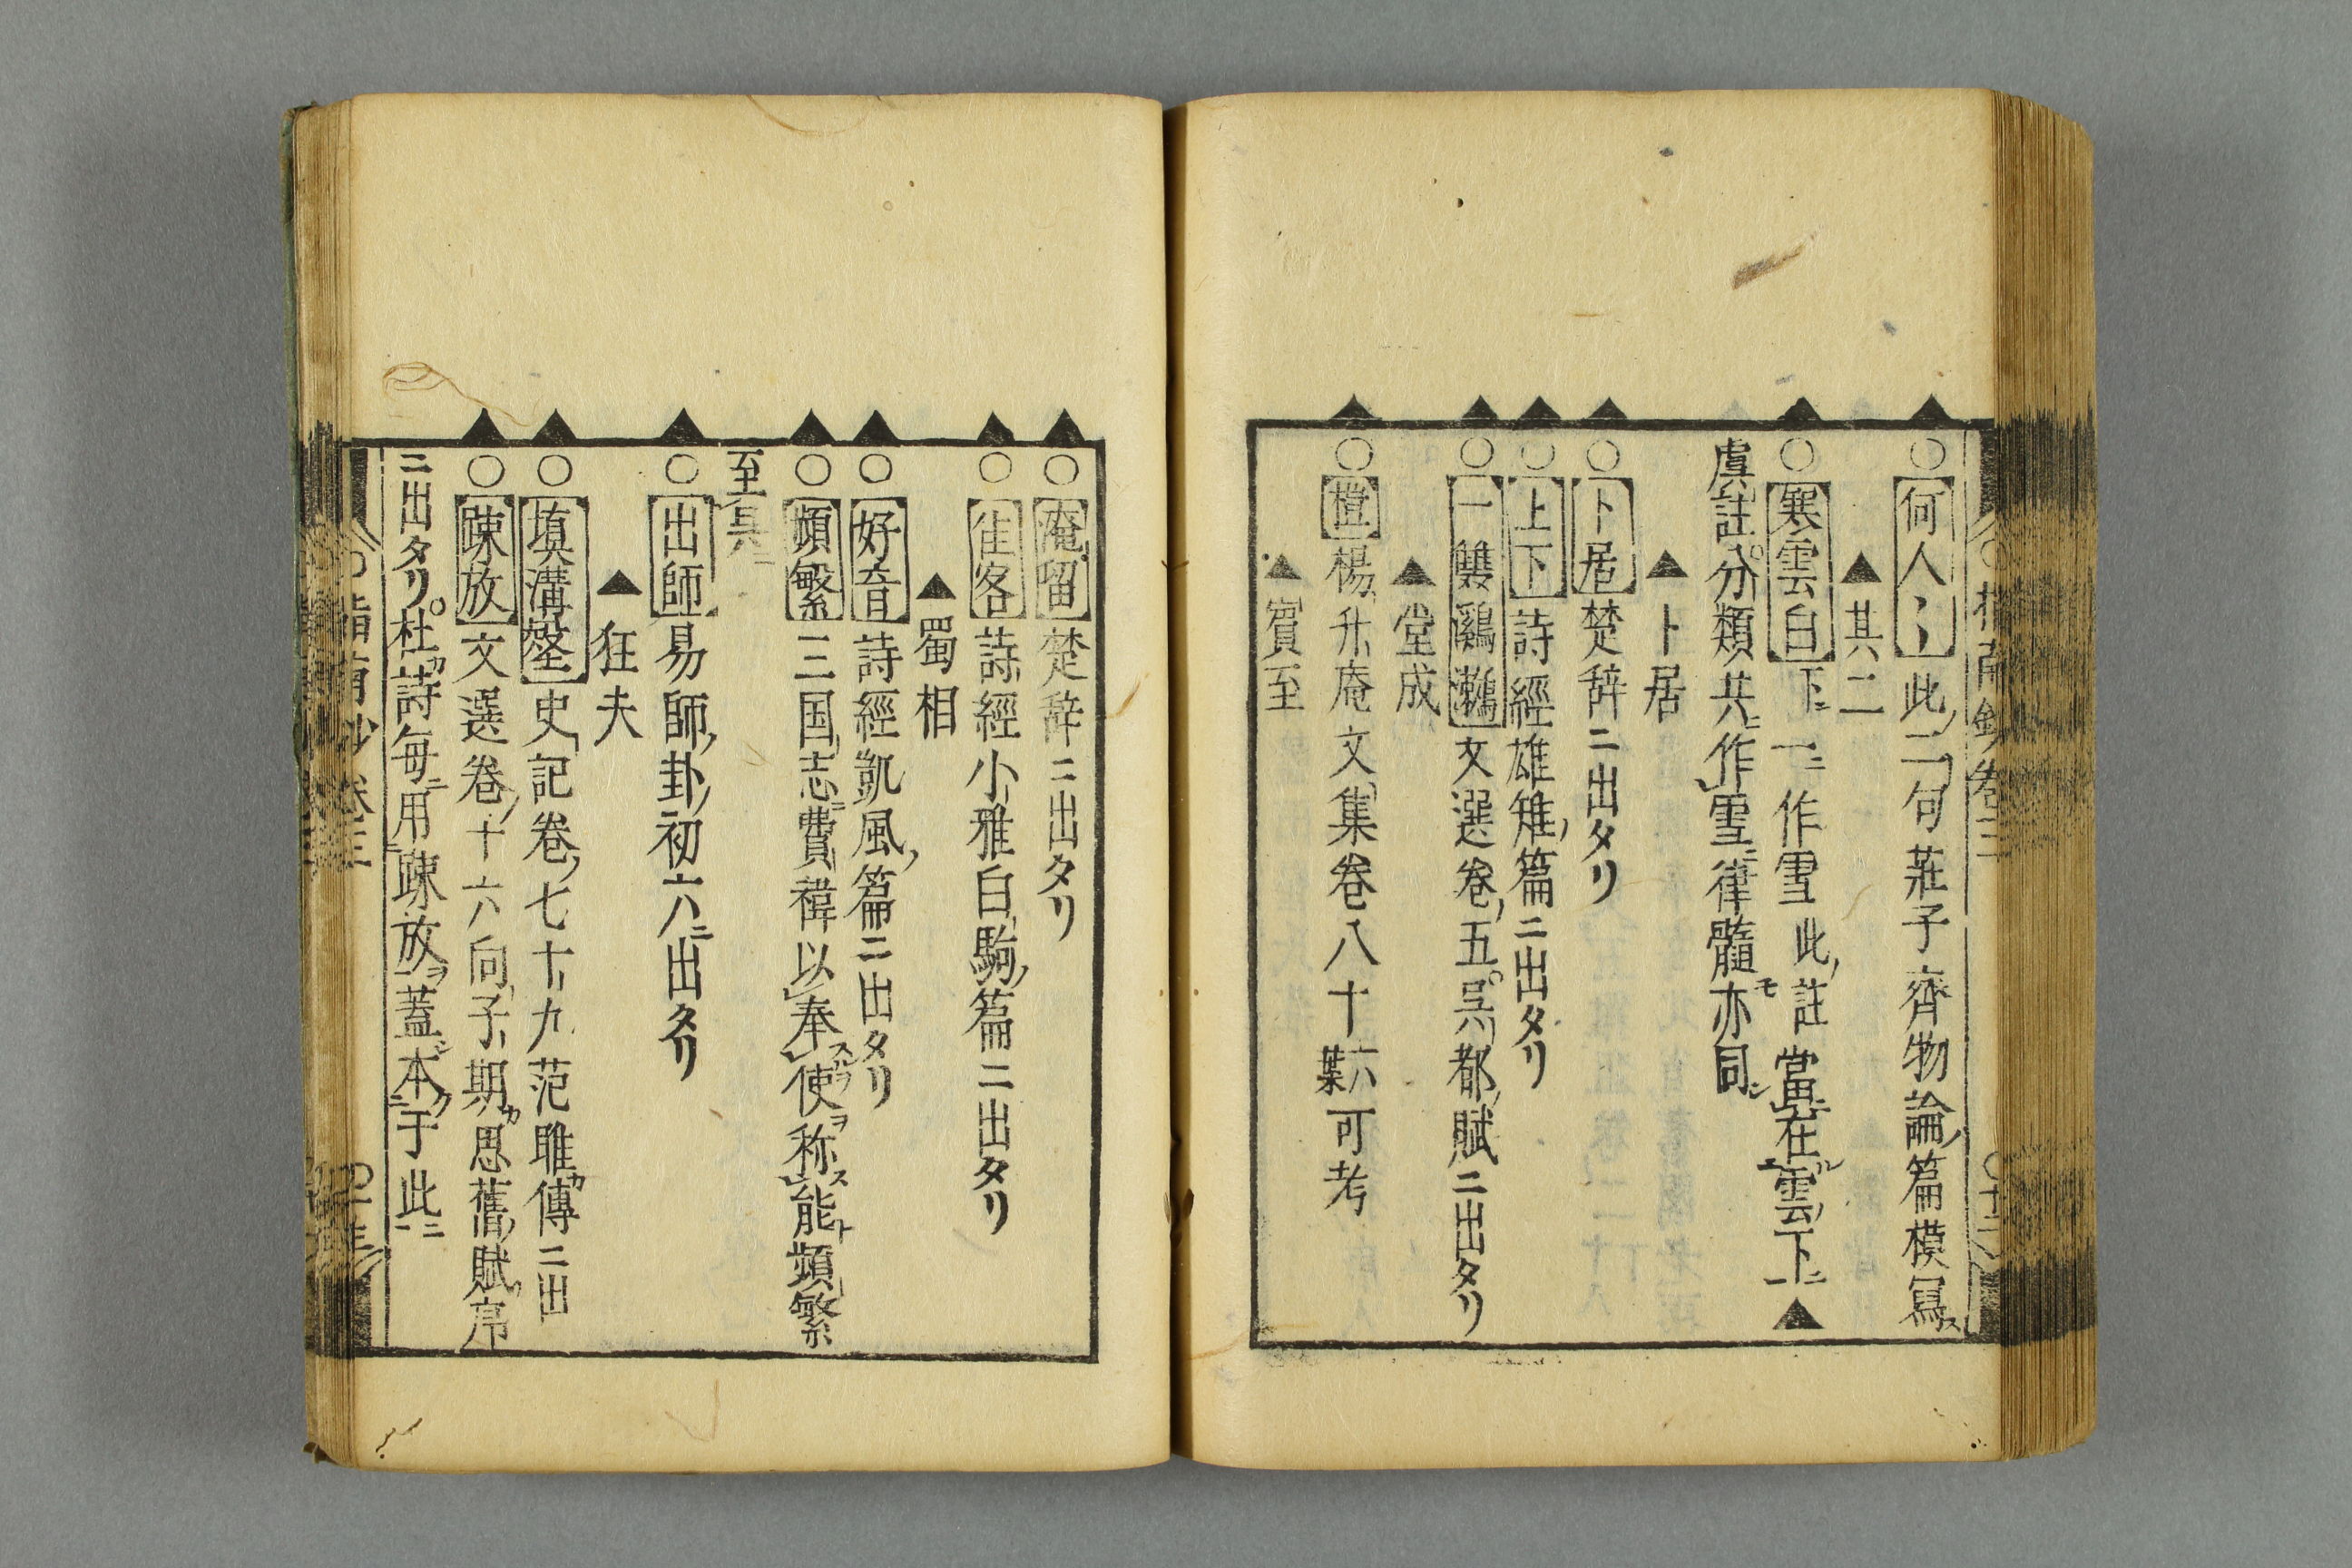 ○何人〻〻此ノ二句荘子齊物論ノ篇模冩ス
▲其二
○寒雲白下ニ一ニ作雪此ノ註當在雲ノ下ニ▲
虞註分類共ニ作雪ニ律髓モ亦同シ
▲卜居
○卜居楚辞ニ出タリ
○上下詩經雄雉ノ篇ニ出タリ
○一雙鸂鷘文選巻ノ五呉都ノ賦ニ出タリ
▲堂成
○榿楊升庵文集巻八十六葉可考
▲賓至
○淹留楚辞ニ出タリ
○佳客詩經小雅白駒ノ篇ニ出タリ
▲蜀相
○好音詩經凱風ノ篇ニ出タリ
○頻繁三国志ニ費禕以奉スルヲ使ヲ称ス能ト頻繁
至呉ニ
○出師易師ノ卦ノ初六ニ出タリ
▲狂夫
○填溝壑史記巻ノ七十九范雎カ傳ニ出
○疎放文選巻ノ十六向子期カ思舊ノ賦ノ序
ニ出タリ杜カ詩毎ニ用疎放ヲ蓋シ本ク于此ニ